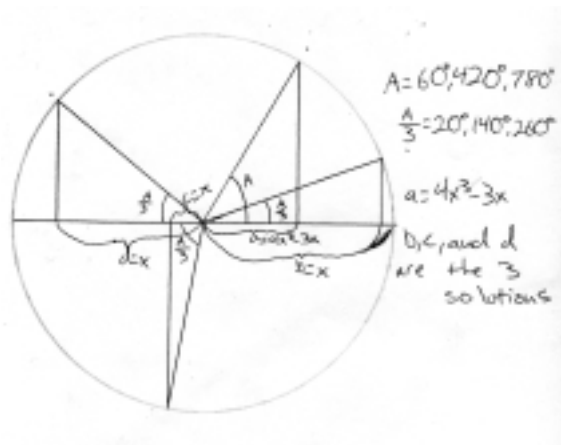 A=60°,420°,780°
A/3=20°,140°,260°
a=4x³-3x
b,c, and d
are the 3
solutions
A/3
c=x
A
A/3
A/3
d=x
a=4x³-3x
b=x